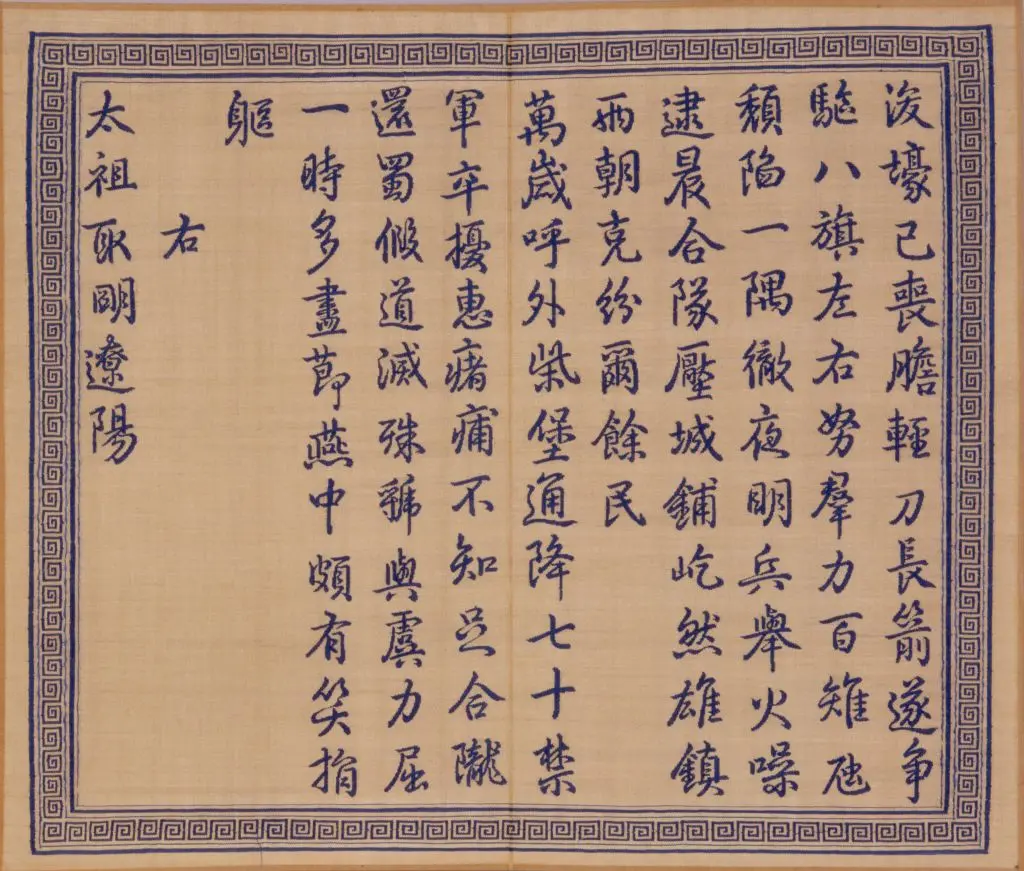 浚壕已喪膽輕刀長箭遂爭
驅八旗左右努羣力百雉虺
頹陷一隅徹夜明兵舉火噪
逮晨合隊壓城鋪屹然雄鎮
兩朝克紛爾餘民
萬歲呼外柴堡通降七十禁
軍卒擾惠瘏痡不知足合隴
還蜀假道滅殊虢與虞力屈
一時多盡節燕中頗有笑捐
軀
右
太祖取明遼陽